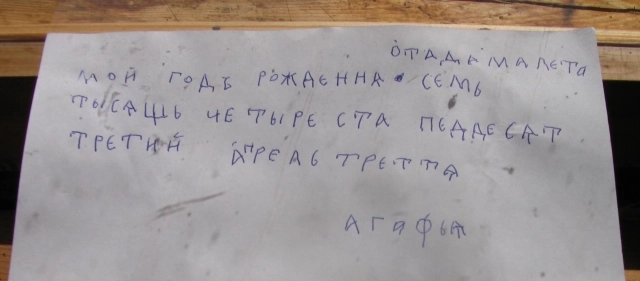 ОТАДАМАЛЕТА
МОЙ ГОДЪ РОЖДЕННА СЕМЬ
ТЫСАЩЬ ЧЕТЫРЕ СТА ПЕДДЕСАТ
ТРЕТИЙ АПРЕЛЬ ТРЕТТА
АГАФЬА